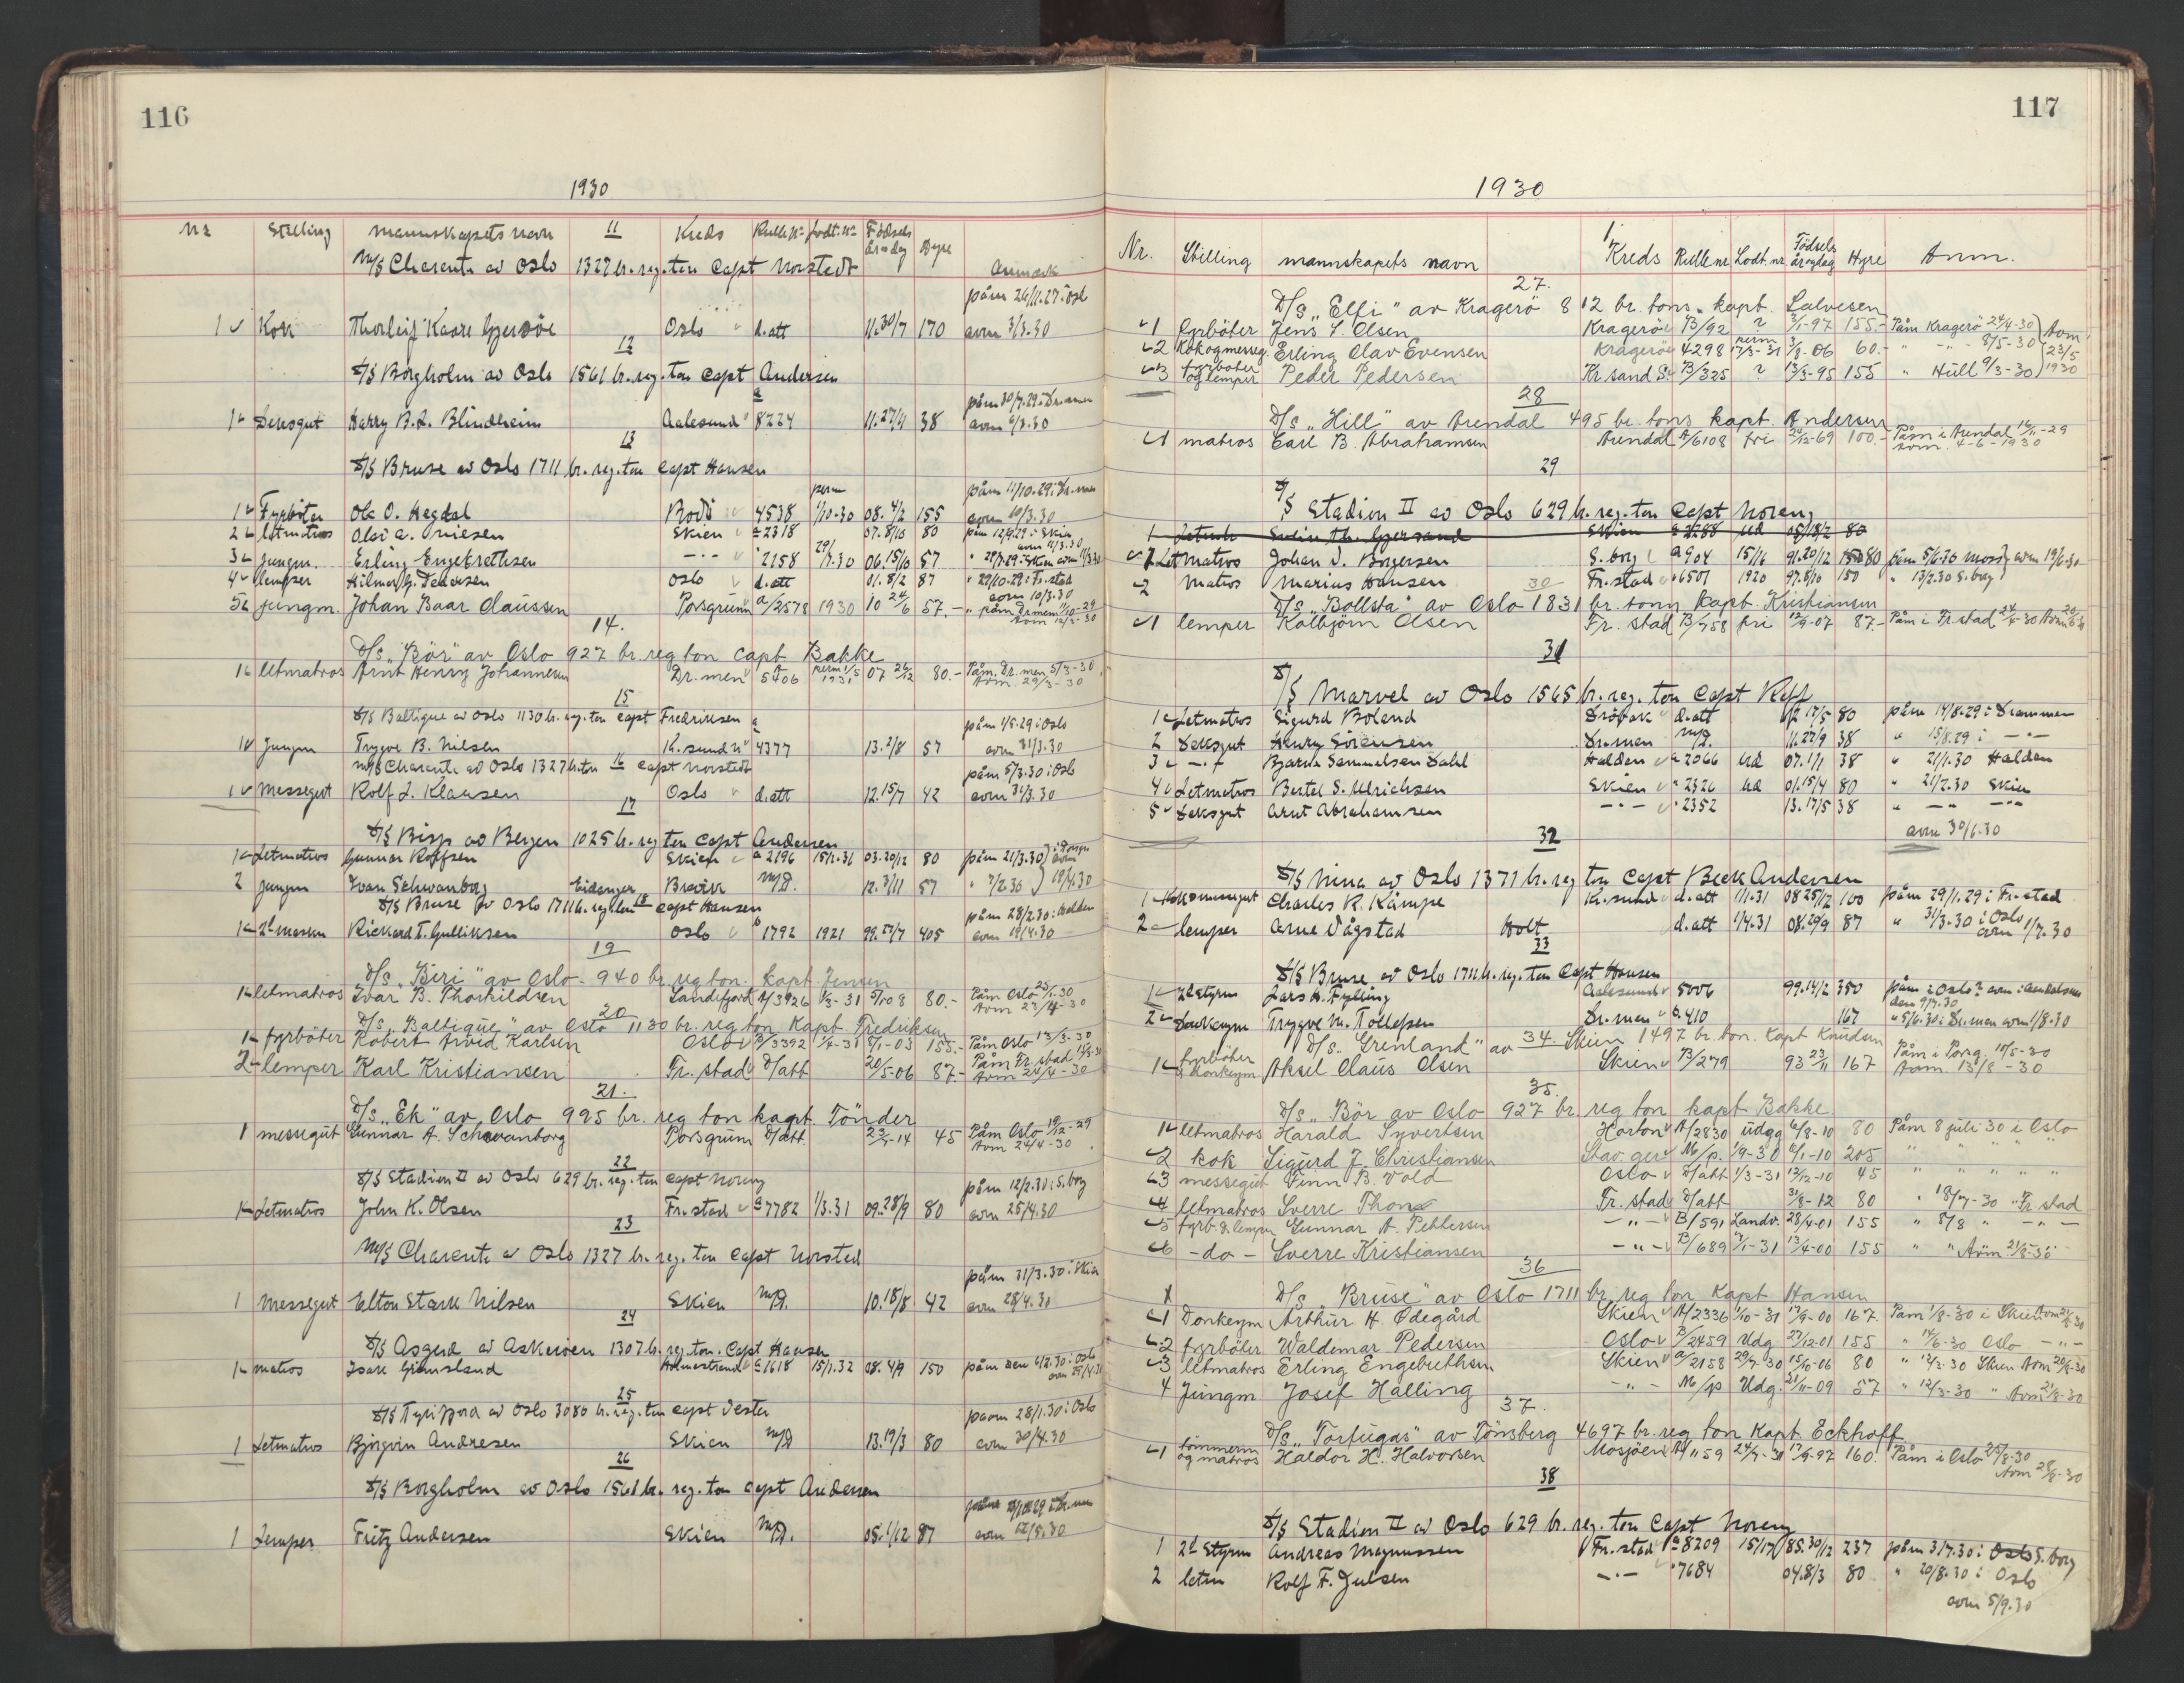 116
1930
Nr Stilling mannskapets navn 11 Kreds Rulle Nr Lodt. Nr Fødsels år og dag Hyre Anmerk
M/S Charente av Oslo 1327 br. reg. ton Capt Norstedt
påm 26/11.27 i Oslo
1 Kok Thorleif Kaare Gjersøe Oslo d. att 11.30/7 170 avm 3/3.30
12
D/S Borgholm av Oslo 1561 br. reg. ton Capt Andersen
påm 30/7.29 i Drammen
1 Deksgut Harry B. L. Blindheim Aalesund a 8224 11.27/9 38 avm 6/3.30
13
D/S Bruse av Oslo 1711 br. reg. ton Capt Hansen
perm påm 11/10.29 i Dr.men
1 Fyrbøter Ola O. Hegdal Bodø 4538 1/10-30 08. 4/2 155 avm 10/3.30
2 letmatros Olai A. a 2318 07. 8/10 80 påm 12/9.29 i Skien avm 11/3.30
3 jungm. Erling Engebrethsen -"- " 2158 29/7.30 06.15/10 57 " 28/9.29 i Skien avm 11/3.30
4 lemper Hilmar G. Pedersen Oslo d. att 01. 8/2 87 " 29/10.29 i Fr.stad avm 10/3.30
5 jungm. Johan Baar Claussen Porsgrunn a/2578 1930 10 24/6 57.- " påm Drmen 11/10-29 avm 12/3-30
14.
D/S "Bör" av Oslo 927 br. reg ton Capt Bakke
1 letmatros Arnt Henry Johannesen Dr. men A 5406 perm 1/5 1931 07 26/12 80.- Påm. Dr. men 5/3-30 Avm. 29/3-30
15
D/S Baltique av Oslo 1130 br. reg. ton Capt Fredriksen
påm 1/5.29 i Oslo
1 Jungm Trygve B. Nilsen K. sund N a 4377 13.2/8 57 avm 31/3.30
M/S Charente av Oslo 1327 br. ton 16 Capt Norstedt
påm 5/3.30 i Oslo
1 Messegut Rolf L. Klausen Oslo d. att 12.15/7 42 avm 31/3.30
17
D/S Bisp av Bergen 1025 br. reg ton Capt Andersen
1 Letmatros Gunnar Rolfsen Skien a 2196 15/2.31 03.20/12 80 påm 21/3.30 i Porsgr avm 19/4.30
2 jungm Ivan Schwanborg Eidanger Brevik M/P. 12.3/11 57 " 7/2.30
D/S Bruse av Oslo 1711 br. reg. ton 18 Capt Hansen
påm 28/2.30 i Halden
1 2d Maskn Rickard T. Gulliksen Oslo b 1792 1921 99.27/7 405 avm 19/4.30
19
D/S "Biri" av Oslo - 940 br. reg ton. kapt. Jensen
1 letmatros Ivar B. Thorkildsen Sandefjord A/3926 1/3-31 5/10 8 80.- Påm Oslo 25/1-30 Avm 23/4-30
20
D/S "Baltique" av Oslo 1130 br. reg ton Kapt. Fredriksen
1 fyrböter Robert Arvid Karlsen Oslo B/3392 1/4-31 8/1-03 155.- Påm Oslo 13/3-30
2 lemper Karl Kristiansen Fr. stad D/att 20/5-06 87.- Påm Fr. stad 14/3-30 Avm 24/4-30
21.
D/S "Ek" av Oslo 995 br. reg ton kapt. Tönder
1 messegut Gunnar A. Schwanborg Porsgrunn D/att. 23/5-14 45 Påm Oslo 19/12-29 Avm 24/4-30
22
D/S Stadion II av Oslo 629 br. reg. ton Capt Noreng
påm 12/2.30 i S. borg
1 Letmatros John K. Olsen Fr. stad a 7782 1/3.31 09.28/9 80 avm 25/4.30
23
M/S Charente av Oslo 1327 br. reg. ton Capt Norsted
påm 31/3.30 i Skien
1 Messegut Elton Stark Nilsen Skien M/P. 10.18/8 42 avm 28/4.30
24
D/S Asgerd av Askerøen 1307 br. reg. ton. Capt Hansen
1 matros Isak Gjemsland Holmestrand a 1618 15/1.32 08. 4/9 150 påm den 6/2.30 i Oslo avm 29/4.30
25
D/S Tyrifjord av Oslo 3080 br. reg. ton Capt Vester
påm 28/1.30 i Oslo
1 Letmatros Bjørgvin Andresen Skien M/P 13.19/3 80 avm 30/4.30
26
D/S Borgholm av Oslo 1561 br. reg. ton Capt Andersen
1 Lemper Fritz Andersen Skien M/P. 05.1/12 87 avm 12/5.30
117
1930
Nr. Stilling mannskapets navn Kreds Rulle nr Lodt. nr. Födsels år og dag Hyre Anm.
27.
D/S "Elfi" av Kragerö 812 br. tons. kapt. Salvesen
1 fyrböter Jens S. Olsen Kragerö B/92 ? 3/1-97 155.- Påm Kragerö 24/4-30 Avm. 23/5 1930
2 Kok og messeg. Erling Olav Evensen Kragerö 4298 perm 17/3-31 3/8-06 60.- " -"- 8/5-30
3 fyrböter og lemper Peder Pedersen Kr. sand S. B/325 ? 13/3-95 155 " Hüll 9/3-30
28
D/S "Hill" av Arendal 495 br. tons kapt. Andersen
1 matros Earl B. Abrahamsen Arendal A/6108 fri 24/12-69 100.- Påm i Arendal 16/11-29 Avm. 4-6-1930
29
D/S Stadion II av Oslo 629 br. reg. ton Capt Noreng
1 Letmatr Svein Th. Gjersand Skien a 2288 Ud 05/18/2 80
1 Let Matros Johan D. Borgersen S. borg a 904 15/16 91.20/12 150 80 påm 5/6.30 Moss avm 19/6.30
2 Matros Marius Hansen Fr. stad " 6501 1920 97.8/10 150 " 13/2.30 S. borg
30
D/S "Bollsta" av Oslo 1831 br. tonn Kapt. Kristiansen
1 lemper Kolbjörn Olsen Fr. stad B/758 fri 12/9-07 87.- Påm i Fr stad 24/4-30 Avm 20/6-30
31
D/S Marvel av Oslo 1565 br. reg. ton Capt Roff
1 Letmatros Sigurd Boland Drøbak d. att 12 17/5 80 påm 14/8.29 i Drammen
2 Deksgut Henry Sørensen Dr. men M/P. 11.27/9 38 " 15/8.29 i -"-
3 -"- Bjarne Samuelsen Dahl Halden a 2066 Ud 07.1/1 38 " 21/1.30 Halden
4 Letmatros Bertel S. Ulrichsen Skien " 2326 Ud 01.15/4 80 " 21/2.30 Skien
5 Deksgut Arnt Abrahamsen -"- " 2352 13.17/5 38 " -"- -"-
avm 30/6.30
32
D/S Nina av Oslo 1371 br. reg ton Capt Beck Andersen
1 Kok messegut Charles R. Kämpe Kr. sund d. att 1/1.31 08 25/12 100 påm 29/1.29 i Fr. stad
2 lemper Arne Vågstad Holt d. att 1/4.31 08.29/9 87 " 31/3.30 i Oslo avm 1/7.30
33
D/S Bruse av Oslo 1711 br. reg. ton Capt Hansen
1 2d styrm Lars A. Fylling Aalesund 5006 99.14/2 350 påm i Oslo? avm i Aandalsnes den 9/7.30
2 Donkeym Trygve M. Tollefsen Dr. men b. 410 167 " 5/6.30 i Dr. men avm 1/8-30
34
D/S "Grenland" av Skien 1497 br. ton. Kapt Knudsen
1 fyrböter & donkeym Aksel Claus Olsen Skien B/279 93 23/11 167 Påm i Porsg. 15/5-30 Avm. 13/8-30
35.
D/S "Bör av Oslo 927 br. reg ton kapt Bakke.
1 letmatros Harald Syvertsen Horten A/2830 üdgg 6/8-10 80 Påm 8 juli 30 i Oslo
2 kok Sigurd J. Christiansen Stav ger M/p. 1/9-30 6/1-10 205 " " " " "
3 messegüt Finn B. Vold Oslo D/att 1/3-31 12/12-10 45 " " " " "
4 letmatros Sverre Thon Fr. stad D/att 31/8-12 80 " 18/7-30 " Fr stad
5 fyrb. & lemper Gunnar A. Pettersen -"- B/591 Landv. 28/4-01 155 " 8/8 " -"-
6 -do- Sverre Kristiansen -"- B/689 1/1-31 13/4-00 155 " " Avm 21/8-30
36
D/S "Bruse" av Oslo 1711 br. reg ton Kapt Hansen
1 Donkeym Arthur H. Ödegård Skien A/2336 1/10-31 17/9-00 167. Påm 1/8-30 i Skien Avm 21/8-30
2 fyrböter Waldemar Pedersen Oslo B/2459 Udg 27/12-01 155 " 14/6-30 Oslo -"-
3 letmatros Erling Engebrethsen Skien a/2158 29/7-30 15/10-06 80 " 12/3-30 Skien Avm 21/8-30
4 Jüngm Josef Halling -"- M/p Udg. 21/11-09 57 " 12/3-30 " Avm 21/8-30
37.
D/S "Tortugas" av Tönsberg 4697 br. reg ton Kapt. Eckhoff
1 tömmerm og matros Haldor H. Halvorsen Mosjöen A/1159 24/7-31 17/9-97 160. Påm i Oslo 25/8-30 Avm 28/8-30
38
D/S Stadion II av Oslo 629 br. reg. ton Capt Noreng
1 2d Styrm Andreas Magnussen Fr. stad a 8209 15/17 85.30/12 237 påm 3/7.30 i Oslo S. borg
2 letm Rolf F. Julsen -"- " 7684 04.8/3 80 " 20/8.30 i Oslo
avm 5/9.30